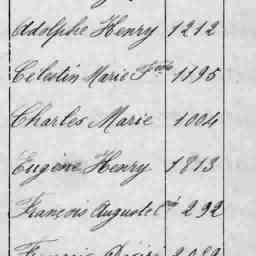 Adolphe Henry 1212
Célestin Marie 1195
Charles Marie 1004
Eugène Henry 1813
François Auguste 292
François